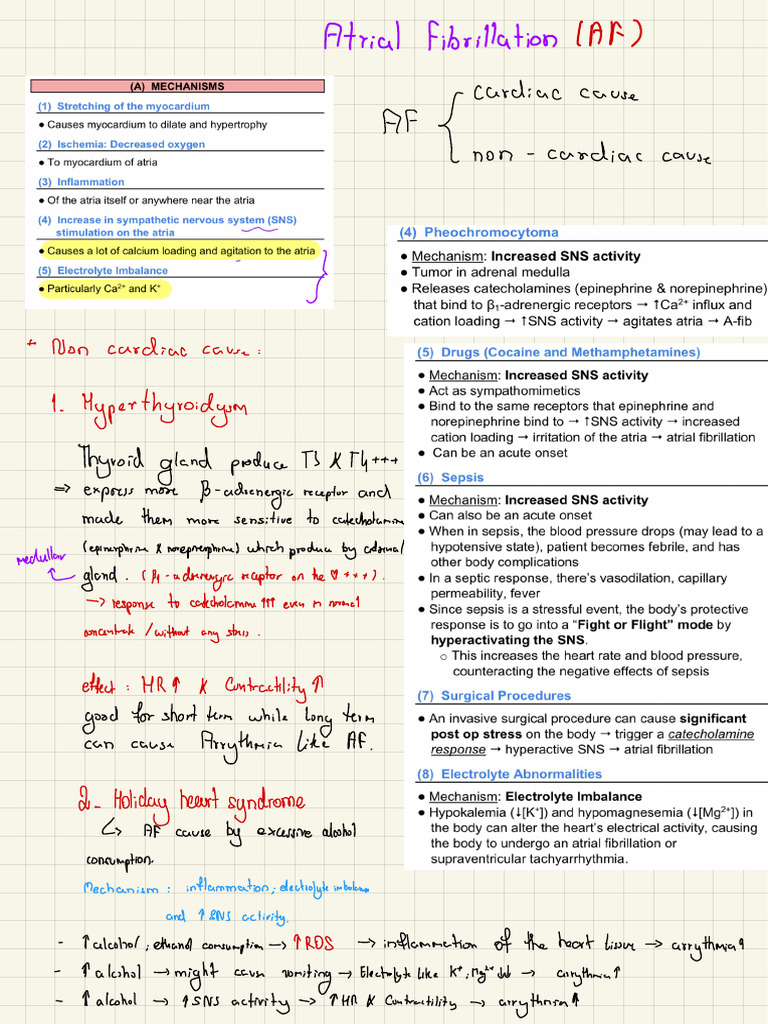 Atrial Fibrillation (AF)
(A) MECHANISMS
(1) Stretching of the myocardium
● Causes myocardium to dilate and hypertrophy
(2) Ischemia: Decreased oxygen
● To myocardium of atria
(3) Inflammation
● Of the atria itself or anywhere near the atria
(4) Increase in sympathetic nervous system (SNS)
stimulation on the atria
● Causes a lot of calcium loading and agitation to the atria
(5) Electrolyte Imbalance
● Particularly Ca²⁺ and K⁺
AF { cardiac cause
non - cardiac cause
+ Non cardiac cause :
1. Hyperthyroidysm
Thyroid gland produce T3 & T4 +++
⇒ express more β-adrenergic receptor and
made them more sensitive to catecholamine
(epinephrine & norepinephrine) which produce by adrenal
medullar
gland. (β1-adrenergic receptor on the ♡ +++).
→ response to catecholamine ↑↑↑ even in normal
concentrate / without any stress.
effect : HR ↑ & Contractility ↑
good for short term while long term
can cause Arrythmia like AF.
2_ Holiday heart syndrome
↳ AF cause by excessive alcohol
consumption.
Mechanism : inflammation, electrolyte imbalance
and ↑ SNS activity.
(4) Pheochromocytoma
● Mechanism: Increased SNS activity
● Tumor in adrenal medulla
● Releases catecholamines (epinephrine & norepinephrine)
that bind to β₁-adrenergic receptors → ↑Ca²⁺ influx and
cation loading → ↑SNS activity → agitates atria → A-fib
(5) Drugs (Cocaine and Methamphetamines)
● Mechanism: Increased SNS activity
● Act as sympathomimetics
● Bind to the same receptors that epinephrine and
norepinephrine bind to → ↑SNS activity → increased
cation loading → irritation of the atria → atrial fibrillation
● Can be an acute onset
(6) Sepsis
● Mechanism: Increased SNS activity
● Can also be an acute onset
● When in sepsis, the blood pressure drops (may lead to a
hypotensive state), patient becomes febrile, and has
other body complications
● In a septic response, there's vasodilation, capillary
permeability, fever
● Since sepsis is a stressful event, the body's protective
response is to go into a “Fight or Flight” mode by
hyperactivating the SNS.
○ This increases the heart rate and blood pressure,
counteracting the negative effects of sepsis
(7) Surgical Procedures
● An invasive surgical procedure can cause significant
post op stress on the body → trigger a catecholamine
response → hyperactive SNS → atrial fibrillation
(8) Electrolyte Abnormalities
● Mechanism: Electrolyte Imbalance
● Hypokalemia (↓[K⁺]) and hypomagnesemia (↓[Mg²⁺]) in
the body can alter the heart's electrical activity, causing
the body to undergo an atrial fibrillation or
supraventricular tachyarrhythmia.
- ↑ alcohol, ethanol consumption → ↑ ROS → inflammation of the heart tissue → arrythmia ↑
- ↑ alcohol → might cause vomiting → Electrolyte like K⁺, Mg²⁺ → arrythmia ↑
- ↑ alcohol → ↑ SNS activity → ↑ HR & Contractility → arrythmia ↑